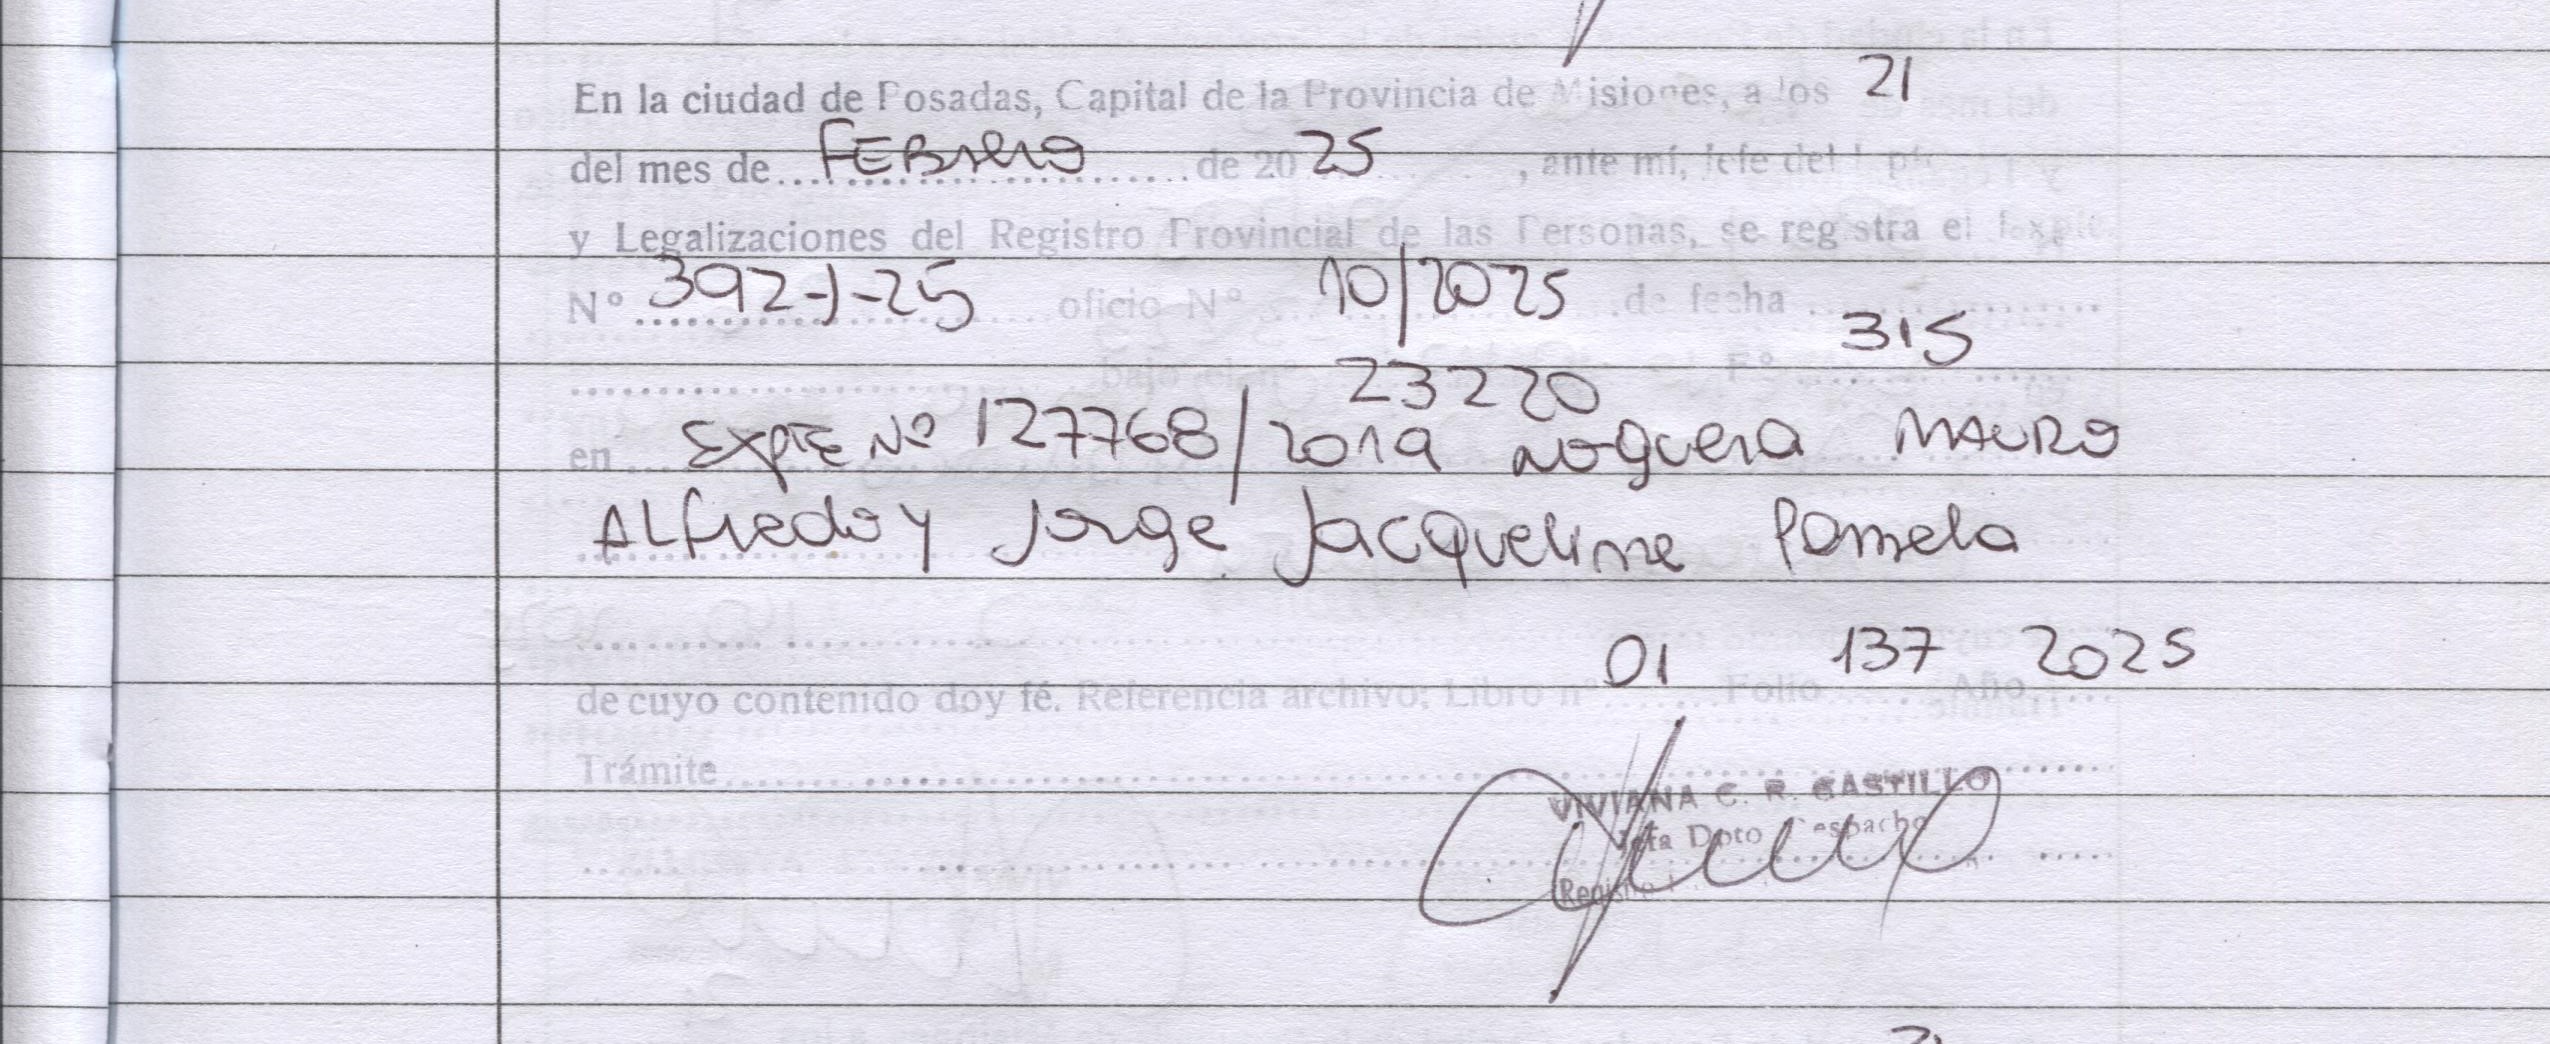 En la ciudad de Posadas, Capital de la Provincia de Misiones, a los 21
del mes de FEBrero de 20 25, ante mí, Jefe del
y Legalizaciones del Registro Provincial de las Personas, se registra el
N° 392-J-25 oficio N° 10/2025 de fecha
bajo 23220 F° 315
en EXPTE Nº 127768/2019 Noguera MAURO
ALfredo y Jorge Jacqueline Pamela
01 137 2025
de cuyo contenido doy fé. Referencia archivo: Libro n° Folio Año
Trámite
VIVIANA C. R. CASTILLO
Jefa Dpto Despacho